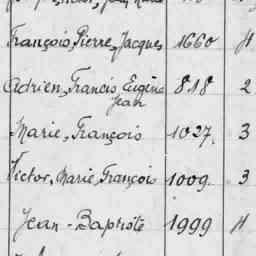 François, Pierre, Jacques 1660 4
Adrien, Francis, Eugène 818 2
Jean
Marie, François 1027. 3
Victor, Marie, François 1009. 3
Jean-Baptiste 1999 4